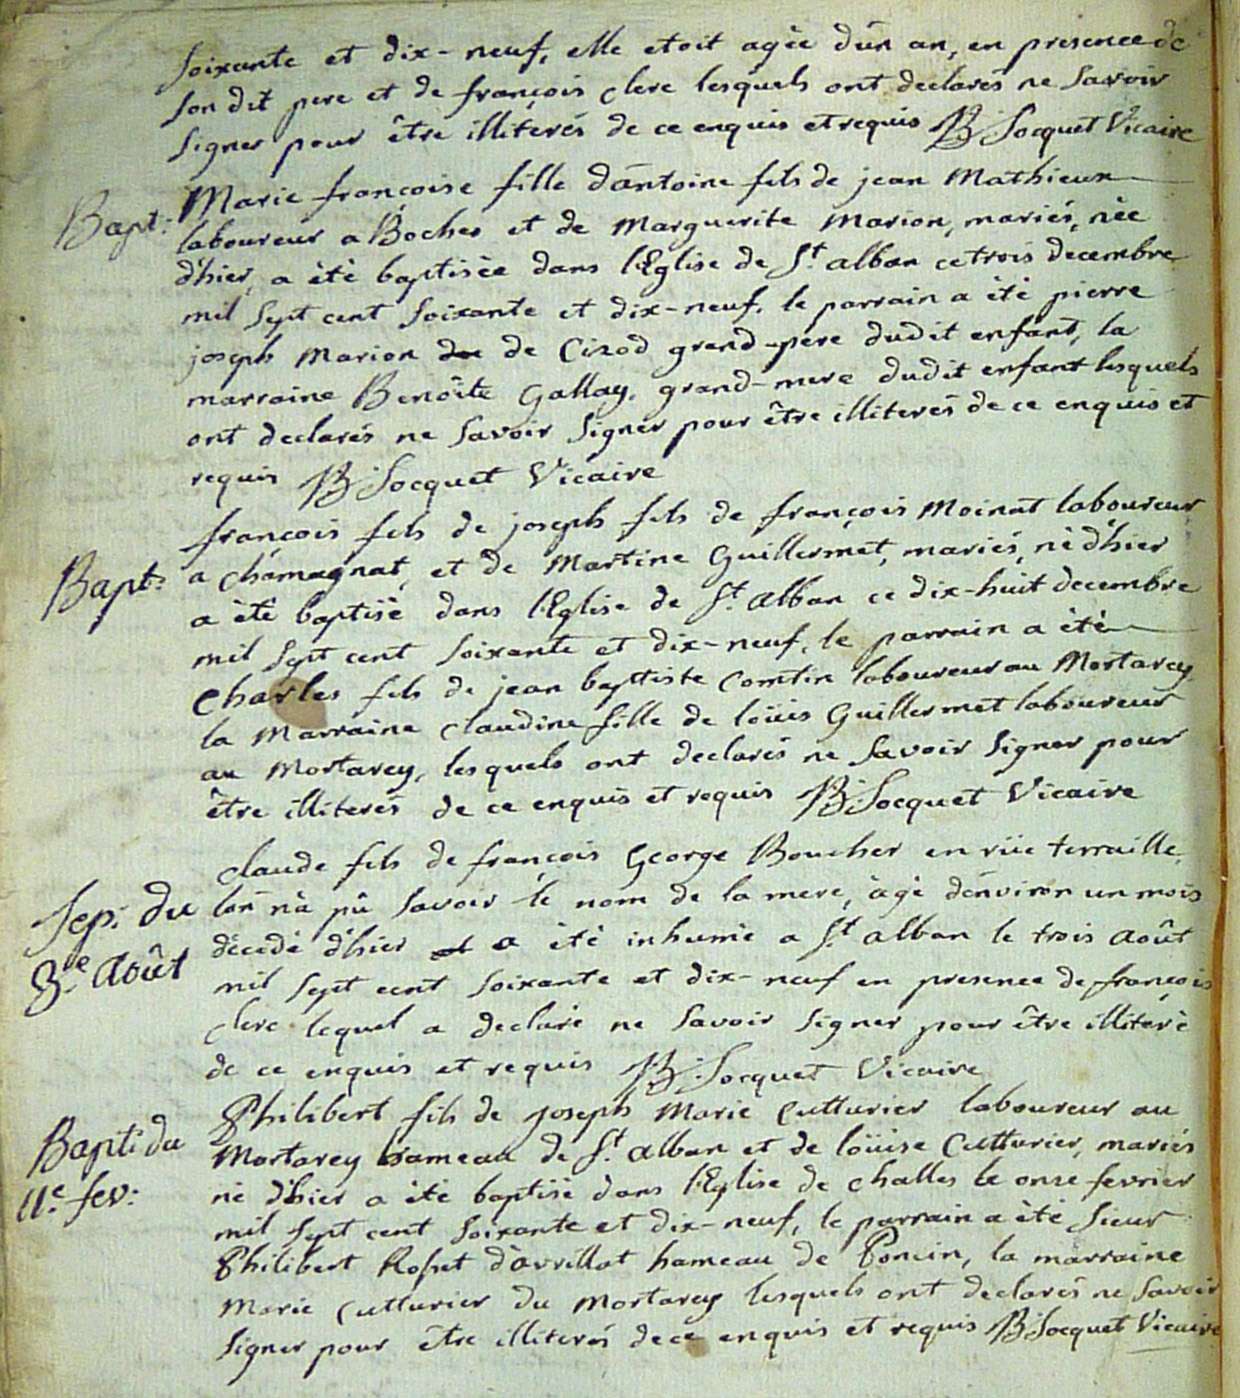 soixante et dix-neuf, elle etoit agèe d'un an, en presence de
son dit pere et de françois clerc lesquels ont declarés ne savoir
signer pour être illiterés de ce enquis et requis B: Socquet Vicaire
Bapt: Marie françoise fille d'antoine fils de jean Mathieux
laboureur a Boches et de Marguerite Marion, mariés, nèe
d'hier, a étè baptisèe dans l'Eglise de St. alban ce trois decembre
mil sept cent soixante et dix-neuf. le parrain a étè pierre
joseph Marion de Cizod grand-pere dudit enfant, la
marraine Benoîte Gallay. grand-mere dudit enfant lesquels
ont declarés ne savoir signer pour être illiterés de ce enquis et
requis B: Socquet Vicaire
françois fils de joseph fils de françois Moinat laboureur
Bapt: a chamagnat, et de Martine Guillermet, mariés, nè d'hier
a étè baptisè dans l'Eglise de St. alban ce dix-huit decembre
mil sept cent soixante et dix-neuf, le parrain a étè
charles fils de jean baptiste Comtin laboureur au Mortarey
la Marraine claudine fille de loüis Guillermet laboureur
au Mortarey, lesquels ont declarés ne savoir signer pour
être illiterés de ce enquis et requis B: Socquet Vicaire
claude fils de françois George Boucher en rüe terraille,
Sep: du l'on n'a pû savoir le nom de la mere, àgè d'environ un mois
3e. Août dècedè d'hier a étè inhumè a St. alban le trois Août
mil sept cent soixante et dix-neuf en presence de françois
clerc lequel a declarè ne savoir signer pour être illiterè
de ce enquis et requis B: Socquet Vicaire
Philibert fils de joseph Marie Cutturier laboureur au
Bapt: du Mortarey hameau de St. alban et de loüise Cutturier, mariés
11e. fev: nè d'hier a étè baptisè dans l'Eglise de challes le onze fevrier
mil sept cent soixante et dix-neuf, le parrain a étè sieur
Philibert Rosset d'avrillat hameau de Poncin, la marraine
Marie Cutturier du Mortarey lesquels ont declarés ne savoir
signer pour être illiterés de ce enquis et requis B: Socquet Vicaire